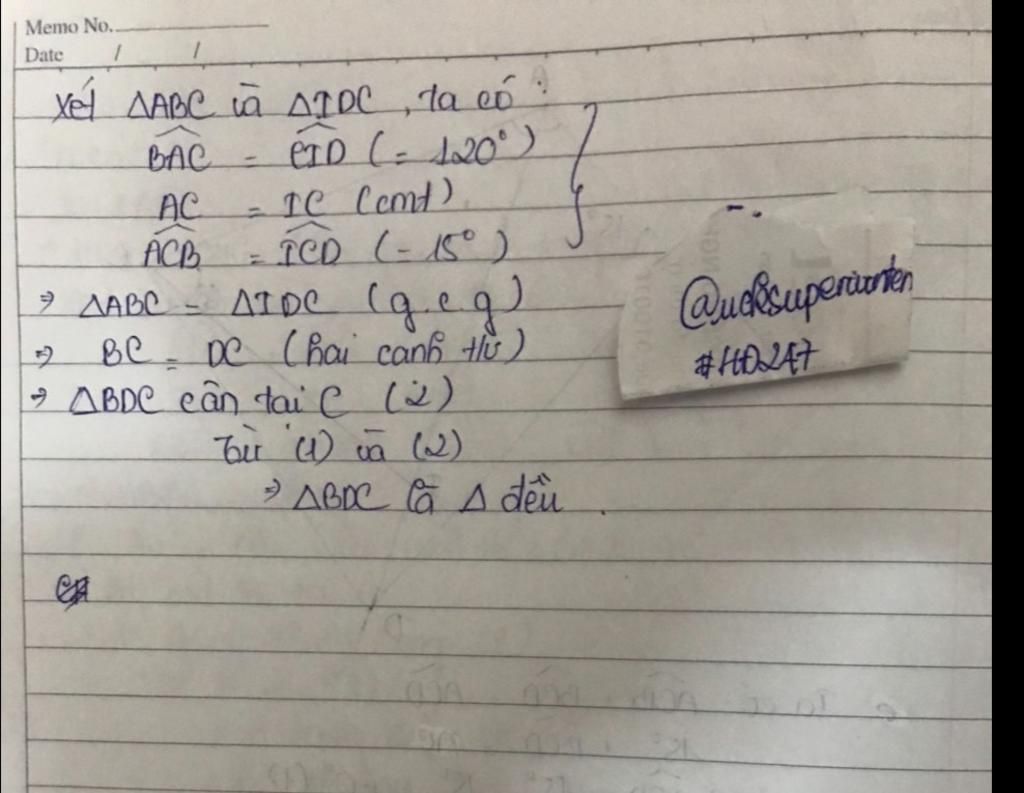 Memo No.
Date / /
Xét ΔABC và ΔIDC, ta có :
BAC = CID (= 120°)
AC = IC (cmt)
ACB = ICD (= 15°)
⇒ ΔABC = ΔIDC (g.c.g)
⇒ BC = DC (hai cạnh t/ư)
⇒ ΔBDC cân tại C (2)
Từ (1) và (2)
⇒ ΔBDC là Δ đều.
#HĐ247